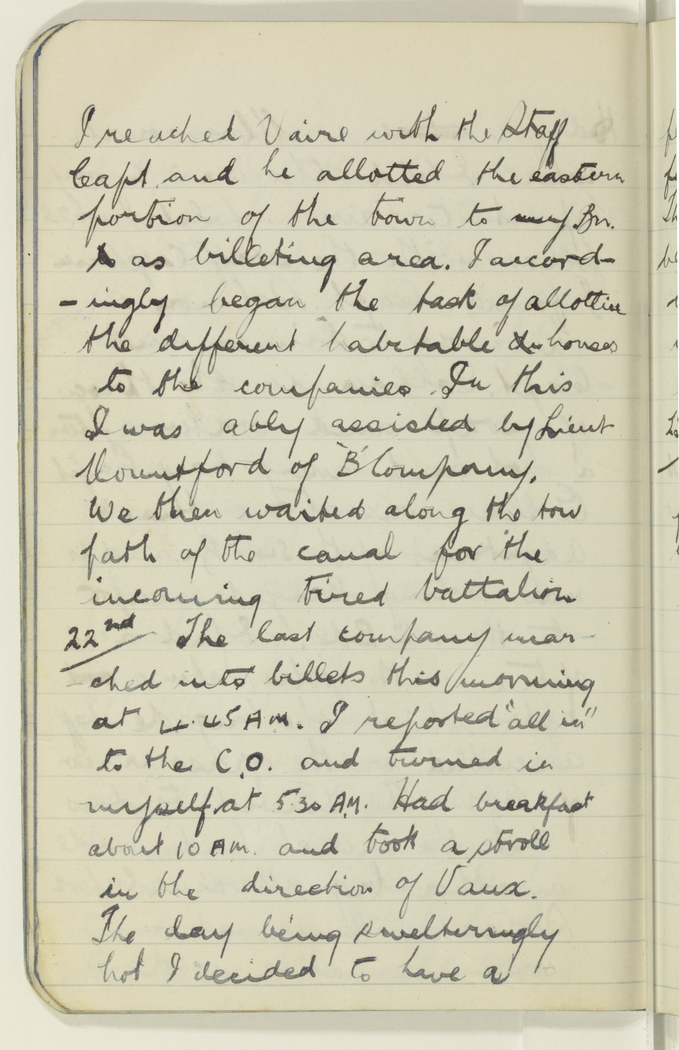 I reached Vaire with the Staff
Capt. and he allotted the eastern
portion of the town to my Bn.
as billeting area. I accord-
-ingly began the task of allottin
the different habitable houses
to the companies. In this
I was ably assisted by Lieut
Mountford of "B" Company.
We then waited along the tow
path of the canal for the
incoming tired battalion
22nd The last company mar-
-ched into billets this morning
at 4.45 AM. I reported "all in"
to the C.O. and turned in
myself at 5.30 AM. Had breakfast
about 10 AM. and took a stroll
in the direction of Vaux.
The day being swelteringly
hot I decided to have a